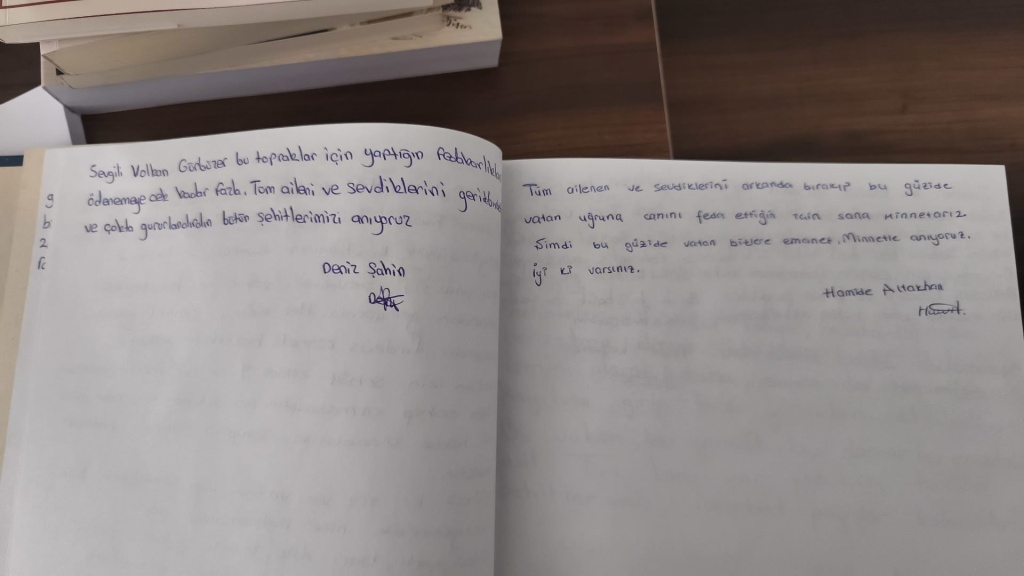 g
b
2
Sevgili Volkan Gürbüzer bu topraklar için yaptığın
ödenemeyecek kadar fazla. Tüm aileni ve sevdiklerini
ve çokta gururlandırdın bütün şehitlerimizi anıyoruz
Deniz Şahin
Tüm ailenen ve sevdiklerini arkanda bırakıp bu güzide
vatan uğruna canını feda ettiğin için sana minnetarız
Şimdi bu güzide vatan bizlere emanet. Minnetle anıyoruz.
İyi ki varsınız.
Hamide